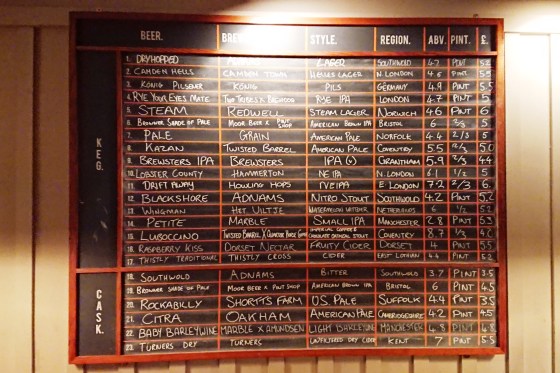 BEER. STYLE. REGION. ABV. PINT. £.
KEG.
1. DRYHOPPED LAGER SOUTHWOLD 4.7 PINT
2. CAMDEN HELLS CAMDEN TOWN HELLES LAGER N. LONDON 4.6 PINT 5.5
3. KÖNIG PILSENER KÖNIG PILS GERMANY 4.9 PINT 5.5
4. RYE YOUR EYES MATE TWO TRIBES X RYE IPA LONDON 4.7 PINT 5
5. STEAM REDWELL STEAM LAGER NORWICH 4.6 PINT 6
6. BROWNER SHADE OF PALE MOOR BEER X PINT SHOP AMERICAN BROWN IPA BRISTOL 6 5
7. PALE GRAIN AMERICAN PALE NORFOLK 4.4 2/3 5
8. KAZAN TWISTED BARREL AMERICAN PALE COVENTRY 5.5 5.0
9. BREWSTERS IPA BREWSTERS IPA GRANTHAM 5.9 2/3 4.4
10. LOBSTER COUNTY HAMMERTON NE IPA N. LONDON 6.1 1/2 5
11. DRIFT AWAY HOWLING HOPS NEIPA E. LONDON 7.2 2/3 6
12. BLACKSHORE ADNAMS NITRO STOUT SOUTHWOLD 4.2 PINT 5.2
13. WINGMAN HET UILTJE NETHERLANDS
14. PETITE MARBLE SMALL IPA MANCHESTER 2.8 PINT
15. LUBOCCINO TWISTED BARREL X OATMEAL STOUT COVENTRY 8.7
16. RASPBERRY KISS DORSET NECTAR FRUITY CIDER DORSET 4 PINT 5.5
17. THISTLY TRADITIONAL THISTLY CROSS CIDER EAST LOTHIAN PINT
CASK.
18. SOUTHWOLD ADNAMS BITTER SOUTHWOLD 3.7 PINT 3.5
19. BROWNER SHADE OF PALE MOOR BEER X PINT SHOP AMERICAN BROWN IPA BRISTOL 6 PINT 4.5
20. ROCKABILLY SHORTTS FARM US PALE SUFFOLK 4.4 PINT 3.5
21. CITRA OAKHAM AMERICAN PALE CAMBRIDGESHIRE 4.2 PINT 4.5
22. BABY BARLEYWINE MARBLE X AMUNDSEN LIGHT BARLEYWINE MANCHESTER 4.8 PINT 4.8
23. TURNERS DRY TURNERS UNFILTERED DRY CIDER KENT 7 PINT 5.5